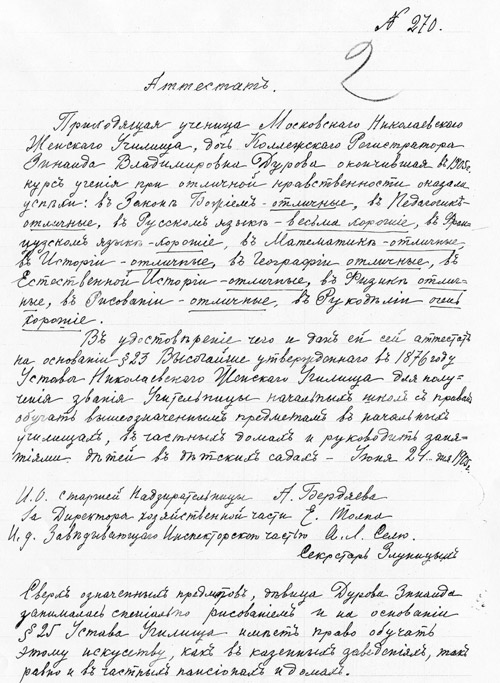 № 270.
2
Аттестатъ.
Приходящая ученица Московскаго Николаевскаго
Женскаго Училища, дочь Коллежскаго Регистратора
Зинаида Владимировна Дурова окончившая въ 1905г.
курсъ ученія при отличной нравственности оказала
успѣхи: въ Законѣ Божіемъ - отличные, въ Педагогикѣ -
отличные, въ Русскомъ языкѣ - весьма хорошіе, въ Фран-
цузскомъ языкѣ - хорошіе, въ Математикѣ - отличные,
въ Исторіи - отличные, въ Географіи отличные, въ
Естественной Исторіи - отличные, въ Физикѣ отлич-
ные, въ Рисованіи - отличные, въ Рукодѣліи очень
хорошіе.
Въ удостовѣреніе чего и данъ ей сей аттестатъ
на основаніи §23 Высочайше утвержденнаго въ 1876 году
Устава Николаевскаго Женскаго Училища для полу-
ченія званія Учительницы начальныхъ школъ съ правомъ
обучать вышеозначеннымъ предметамъ въ начальныхъ
училищахъ, въ частныхъ домахъ и руководить заня-
тіями дѣтей въ дѣтскихъ садахъ - Іюня 24 дня 1905г.
И.О. Старшей Надзирательницы А. Бердяева
За Директора хозяйственной части Е. Толпа
И.д. Завѣдывающаго Инспекторской частью А. Л.
Секретарь
Сверхъ означенныхъ предметовъ, дѣвица Дурова Зинаида
занималась спеціально рисованіемъ и на основаніи
§25 Устава Училища имѣетъ право обучать
этому искусству, какъ въ казенныхъ заведеніяхъ, такъ
равно и въ частныхъ пансіонахъ и домахъ.